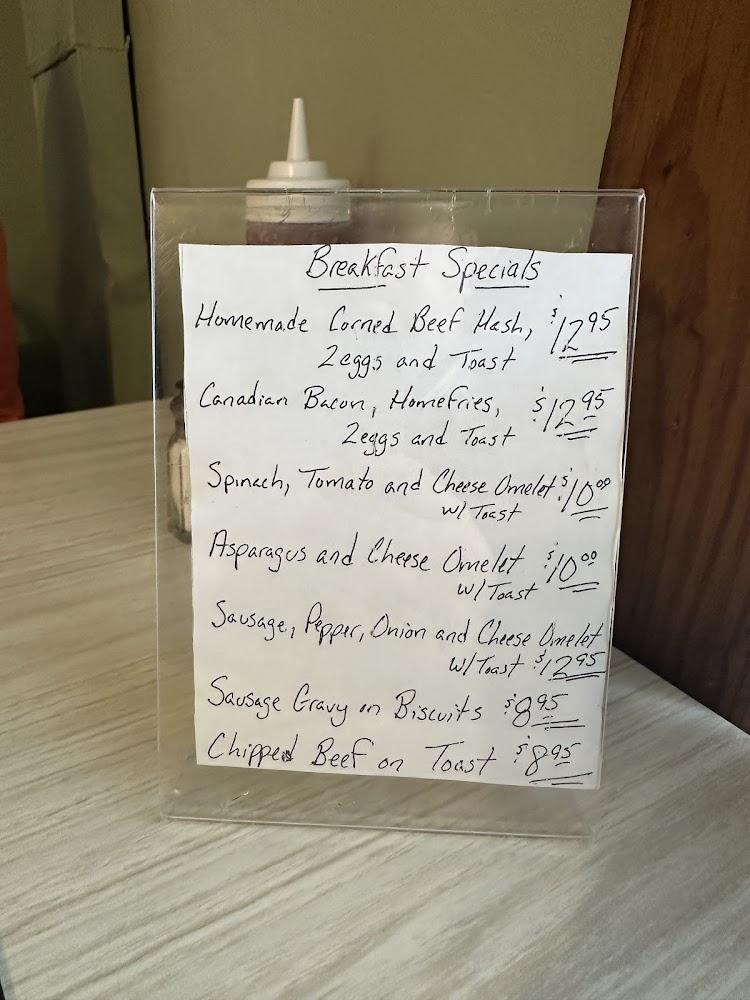 Breakfast Specials
Homemade Corned Beef Hash, $12.95
2eggs and Toast
Canadian Bacon, Homefries, $12.95
2eggs and Toast
Spinach, Tomato and Cheese Omelet $10.00
w/ Toast
Asparagus and Cheese Omelet $10.00
w/ Toast
Sausage, Pepper, Onion and Cheese Omelet
w/ Toast $12.95
Sausage Gravy on Biscuits $8.95
Chipped Beef on Toast $8.95